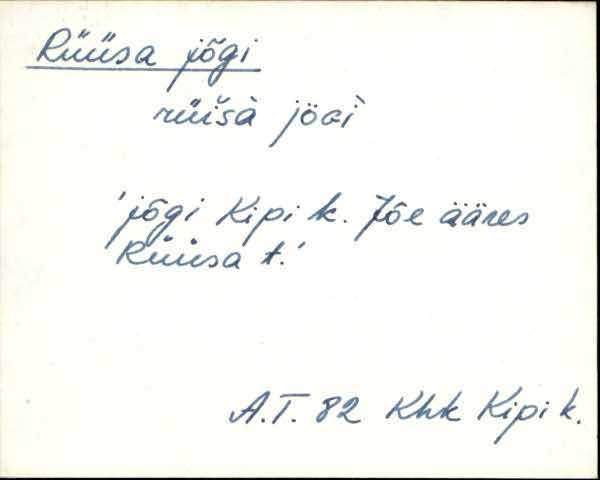 Rüüsa jõgi
rüišà jöɢì
'jõgi Kipi k. Jõe ääres
Rüüsa t.'
A.T. 82 Khk Kipi k.